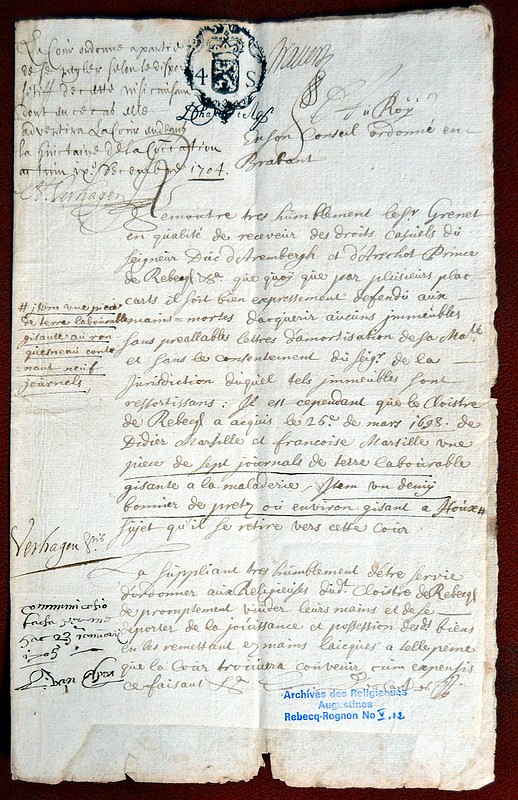 La Cour ordonne a parte
de se regler selon le dispo
sitif decrette nisi causam
dont en ce cas elle
advertira La Cour endeans
la huictaine de la
actum ix.e Decembre 1704.
A. Verhagen
4 S
Au Roÿ
En son Conseil ordonné en
Brabant
Remontre tres humblement le Sr. Grenet
en qualité de receveur des droits Casuels dü
Seigneur Düc d'Arembergh et d'Arschot Prince
de Rebecq &a que quoÿ que par plusieurs plac
carts il soit bien expressement defendü aux
mains=mortes d'acquerir aucuns immeübles
sans preallables lettres d'amortisation de sa Ma.té
et sans le consentement dü seigr. de la
jurisdiction düquel tels immeübles sont
ressortissans: Il est cependant que le Cloistre
de Rebecq a acquis le 26.e de mars 1698. de
Didier Marsille et francoise Marsille vne
piece de sept journals de terre laboürable
gisante a la maladerie, Item vn demij
bonnier de pretz oü environ gisant a Hoüx #
süjet qu'il se retire vers cette Coür
# item vne piece
de terre laboürable
gisante aü ron
quesneau conte
nant neüf
journels
Verhagen
La süppliant tres hümblement d'être servie
d'ordonner aux Religieüses düd.t Cloistre de Rebecq
de promptement vüider leurs mains et de se
deporter de la joüissance et possession desd.s biens
en les remettant ez mains laicques a telle peine
que la Cour trouvera convenir cum expensis
ce faisant &a
Communicatio
facta
hac 23 januarÿ
1705
Archives des Religieuses
Augustines
Rebecq-Rognon No V.12.